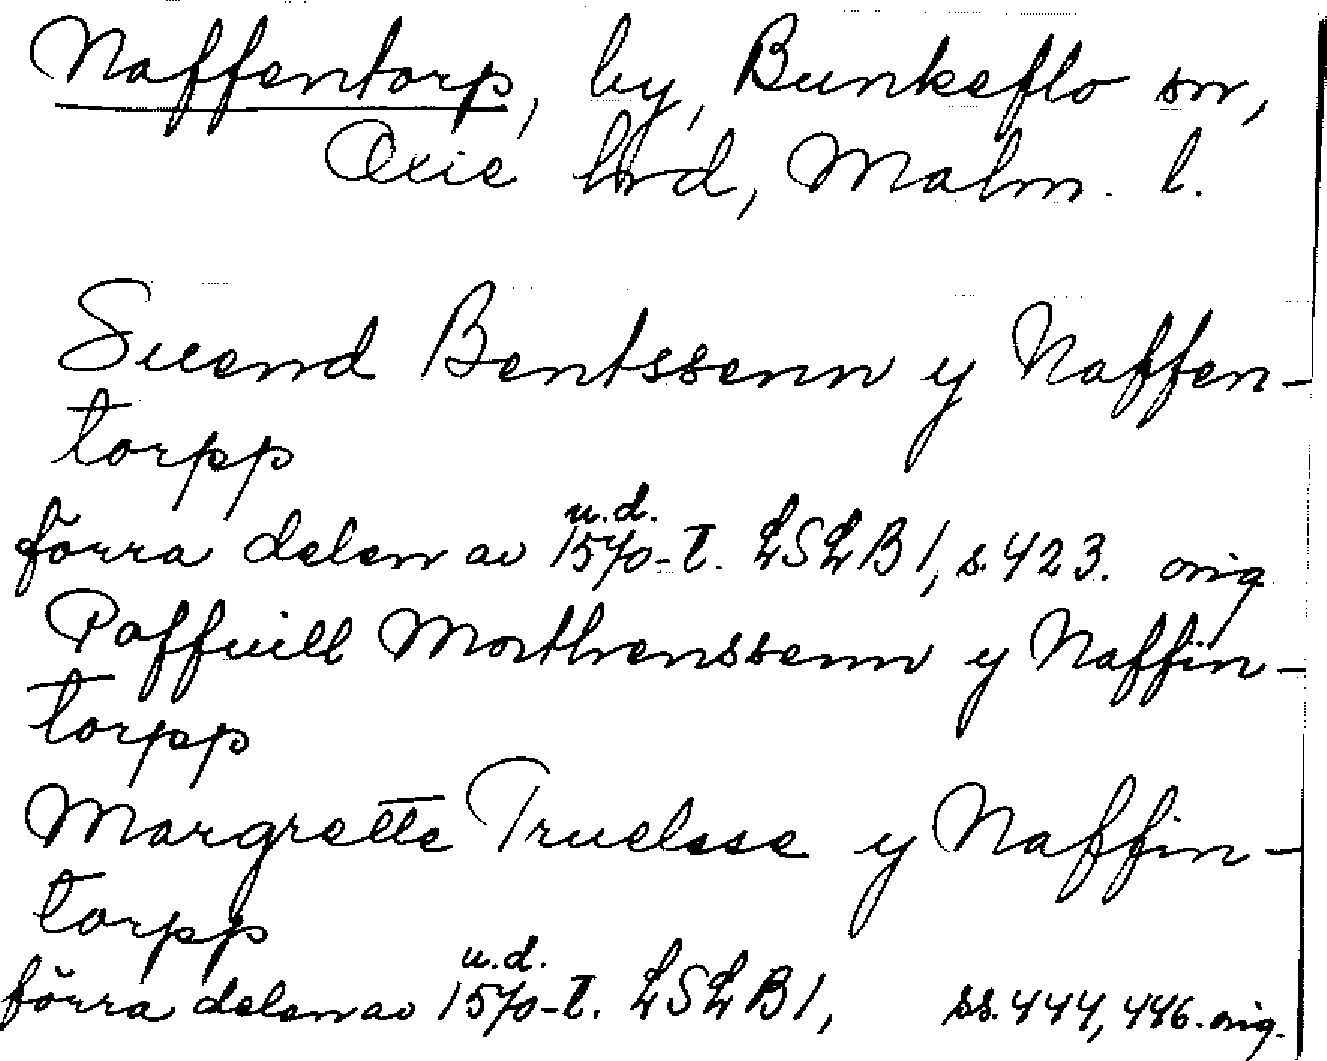 Naffentorp, by, Bunkeflo sn,
Oxie hrd, Malm. l.
Suend Bentssenn y Naffen-
torpp
u.d.
förra delen av 1570-t. LSLB 1, s. 423. orig
Poffuill Morthenssenn y Naffin-
torpp
Margrette Truelsse y Naffin-
torpp
u.d.
förra delen av 1570-t. LSLB 1, ss. 444, 446. orig.